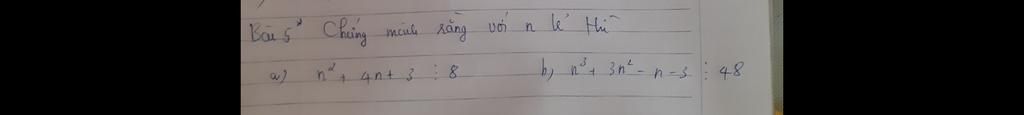 Bài 5* Chứng minh rằng với n lẻ thì
a) n² + 4n + 3 ⋮ 8 b) n³ + 3n² - n - 3 ⋮ 48